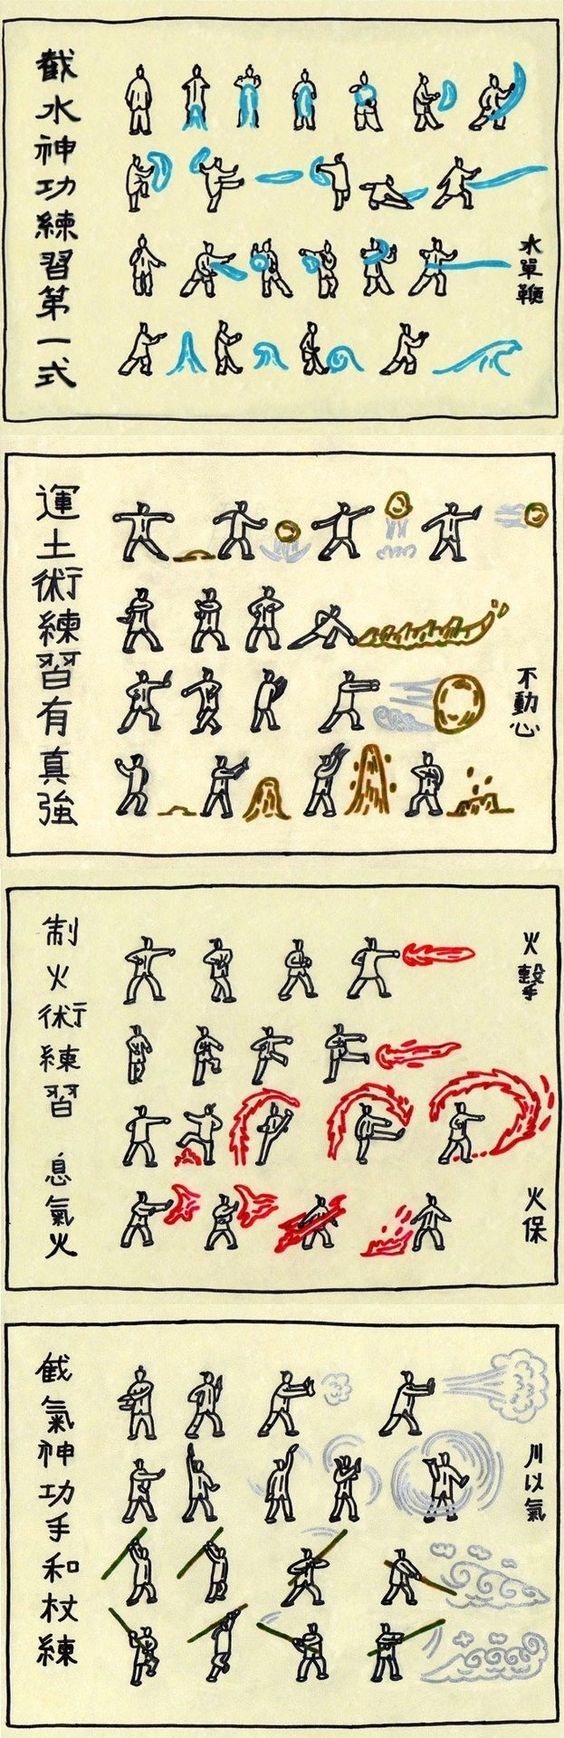 截水神功練習第一式
水單鞭
運土術練習有真強
不動心
制火術練習 息氣火
火擊
火保
截氣神功手和杖練
川以氣